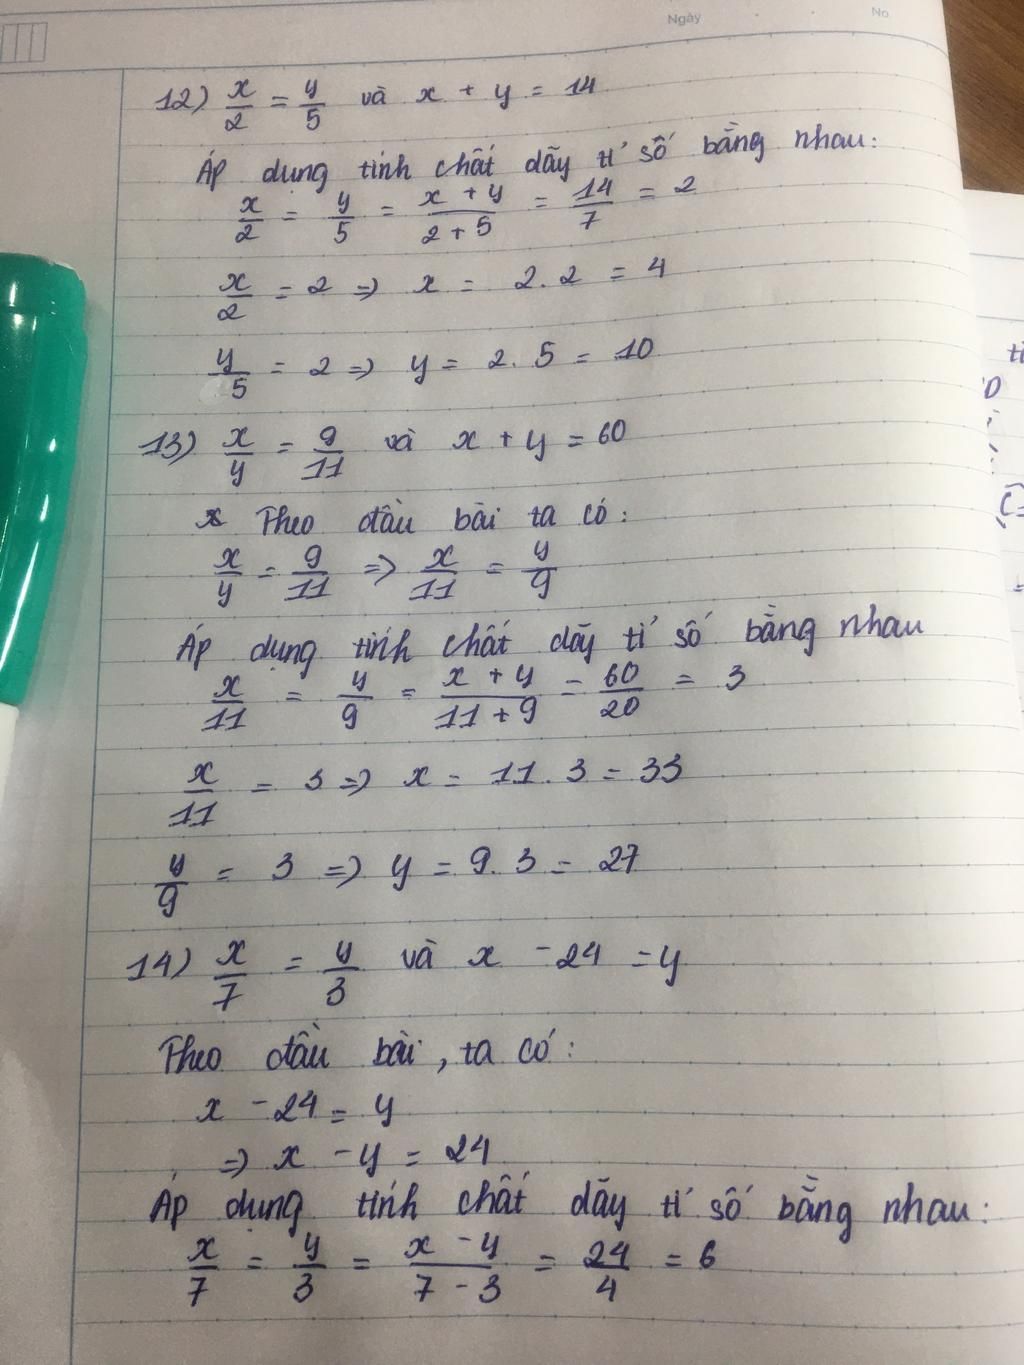 Ngày No.
12) x/2 = y/5 và x + y = 14
Áp dụng tính chất dãy tỉ số bằng nhau:
x/2 = y/5 = x + y/2 + 5 = 14/7 = 2
x/2 = 2 => x = 2.2 = 4
y/5 = 2 => y = 2.5 = 10
13) x/y = 9/11 và x + y = 60
Theo đầu bài ta có:
x/y = 9/11 => x/11 = y/9
Áp dụng tính chất dãy tỉ số bằng nhau
x/11 = y/9 = x + y/11 + 9 = 60/20 = 3
x/11 = 3 => x = 11.3 = 33
y/9 = 3 => y = 9.3 = 27
14) x/7 = y/3 và x - 24 = y
Theo đầu bài, ta có:
x - 24 = y
=> x - y = 24
Áp dụng tính chất dãy tỉ số bằng nhau:
x/7 = y/3 = x - y/7 - 3 = 24/4 = 6